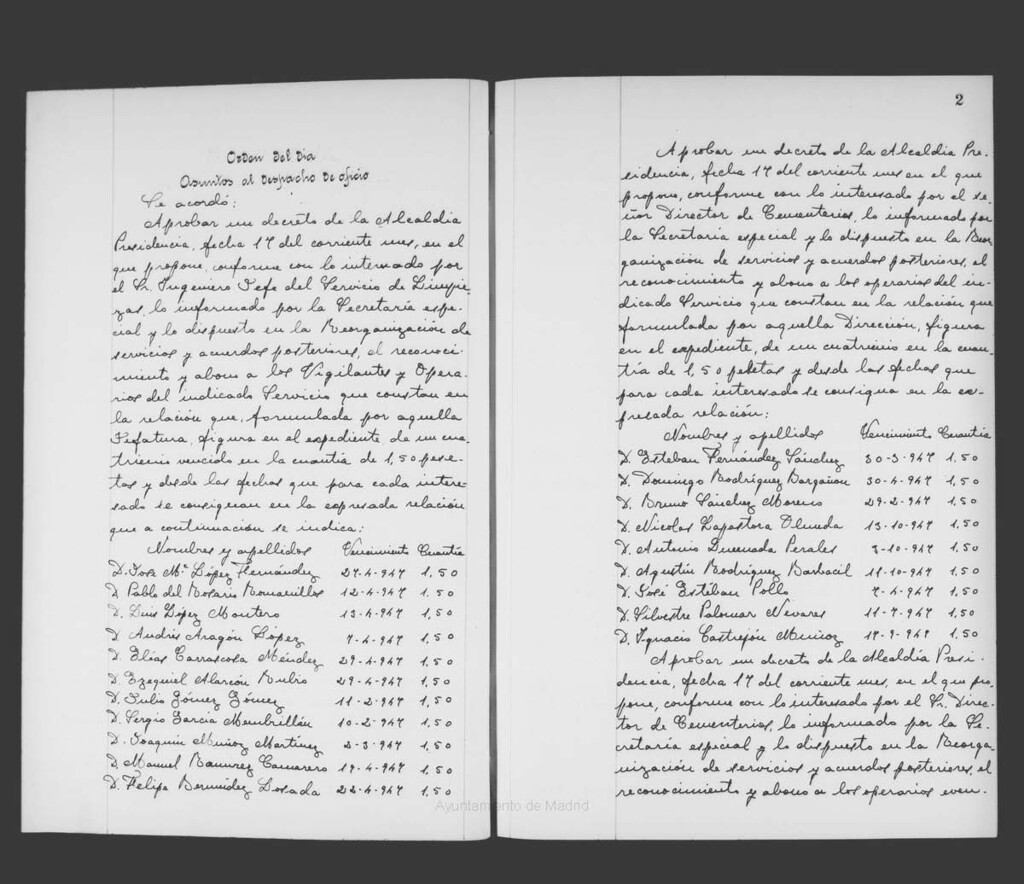 Orden del dia
Asuntos al despacho de oficio
Se acordó:
Aprobar un decreto de la Alcaldia
Presidencia, fecha 17 del corriente mes, en el
que propone, conforme con lo interesado por
el Sr. Ingeniero Jefe del Servicio de Limpie-
zas, lo informado por la Secretaría espe-
cial y lo dispuesto en la Reorganización de
servicios y acuerdos posteriores, el reconoci-
miento y abono a los Vigilantes y Opera-
rios del indicado Servicio que constan en
la relación que, formulada por aquella
Jefatura, figura en el expediente, de un cua-
trienio vencido en la cuantía de 1,50 pese-
tas y desde las fechas que para cada intere-
sado se consignan en la expresada relación
que a continuación se indica:
Nombres y apellidos Vencimiento Cuantía
D. José Mª López Fernández 27-4-947 1,50
D. Pablo del Rosario Romanillos 12-4-947 1,50
D. Luis López Montero 13-4-947 1,50
D. Andrés Aragón López 7-4-947 1,50
D. Elías Carrascosa Méndez 29-4-947 1,50
D. Ezequiel Alarcón Rubio 29-4-947 1,50
D. Julio Gómez Gómez 11-2-947 1,50
D. Sergio García Membrillán 10-2-947 1,50
D. Joaquín Muñoz Martínez 2-3-947 1,50
D. Manuel Ramírez Camarero 19-4-947 1,50
D. Felipe Bermúdez Losada 22-4-947 1,50
2
Aprobar un decreto de la Alcaldia Pre-
sidencia, fecha 17 del corriente mes en el que
propone, conforme con lo interesado por el se-
ñor Director de Cementerios, lo informado por
la Secretaría especial y lo dispuesto en la Reor-
ganización de servicios y acuerdos posteriores, el
reconocimiento y abono a los operarios del in-
dicado Servicio que constan en la relación que
formulada por aquella Dirección, figura
en el expediente, de un cuatrienio en la cuan-
tía de 1,50 pesetas y desde las fechas que
para cada interesado se consigna en la ex-
presada relación:
Nombres y apellidos Vencimiento Cuantía
D. Esteban Fernández Sánchez 30-3-947 1,50
D. Domingo Rodríguez Bargañon 30-4-947 1,50
D. Bruno Sánchez Moreno 29-2-947 1,50
D. Nicolás Lapastora Olmeda 13-10-947 1,50
D. Antonio Quemada Perales 3-10-947 1,50
D. Agustín Rodríguez Barbacil 11-10-947 1,50
D. José Estéban Pollo 7-4-947 1,50
D. Silvestre Palomar Nevares 11-7-947 1,50
D. Ignacio Castrejón Muñoz 17-9-947 1,50
Aprobar un decreto de la Alcaldía Presi-
dencia, fecha 17 del corriente mes, en el que pro-
pone, conforme con lo interesado por el Sr. Direc-
tor de Cementerios, lo informado por la Se-
cretaría especial y lo dispuesto en la Reorga-
nización de servicios y acuerdos posteriores, el
reconocimiento y abono a los operarios even-
Ayuntamiento de Madrid